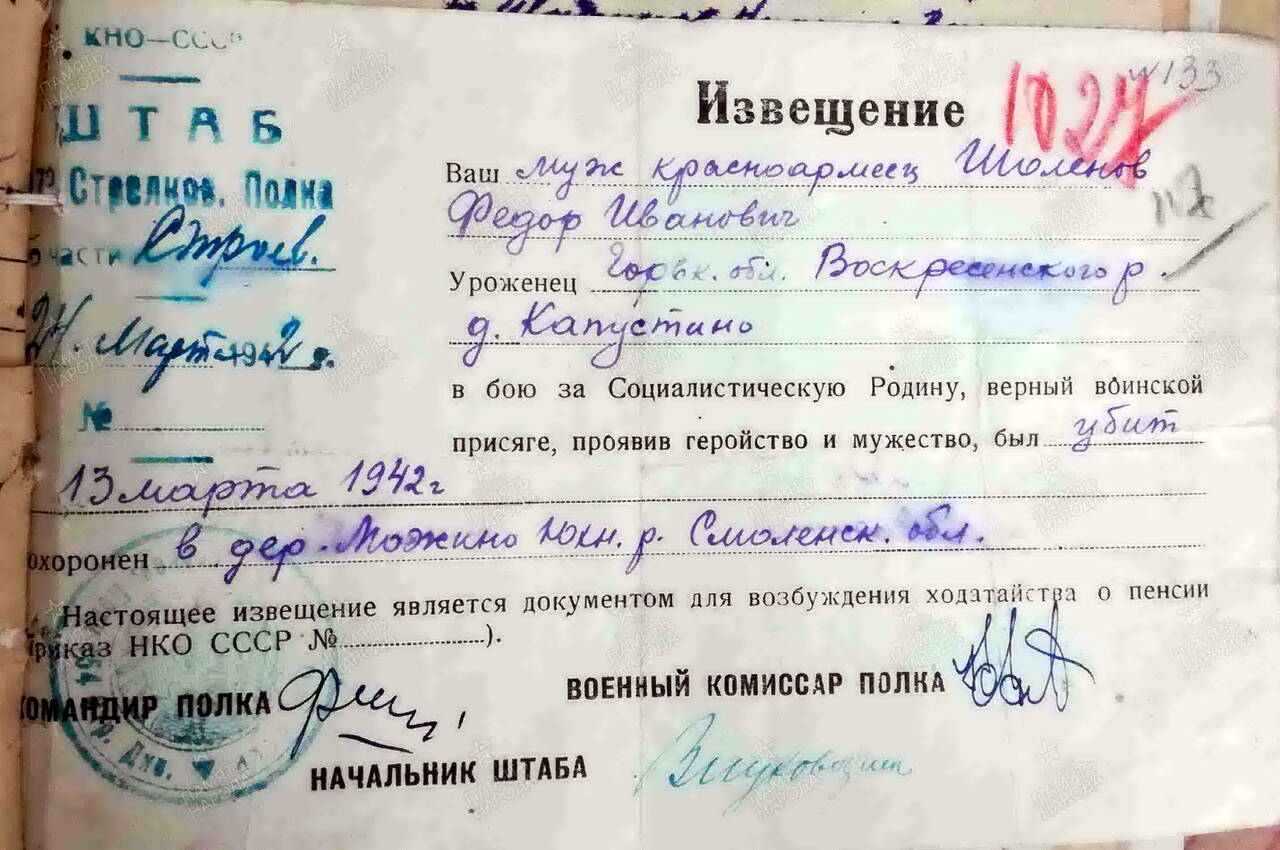 КНО—СССР
ШТАБ
Стрелков. Полка
части Строев.
24. Март 1942 г.
№
Извещение
1027
133
Ваш муж красноармеец Шоленов
Федор Иванович
Уроженец Горьк. обл. Воскресенского р.
д. Капустино
в бою за Социалистическую Родину, верный воинской
присяге, проявив геройство и мужество, был убит
13 марта 1942 г
охоронен в дер. Можино Юхн. р. Смоленск. обл.
Настоящее извещение является документом для возбуждения ходатайства о пенсии
приказ НКО СССР № ).
КОМАНДИР ПОЛКА
ВОЕННЫЙ КОМИССАР ПОЛКА
НАЧАЛЬНИК ШТАБА
ПАМЯТЬ НАРОДА